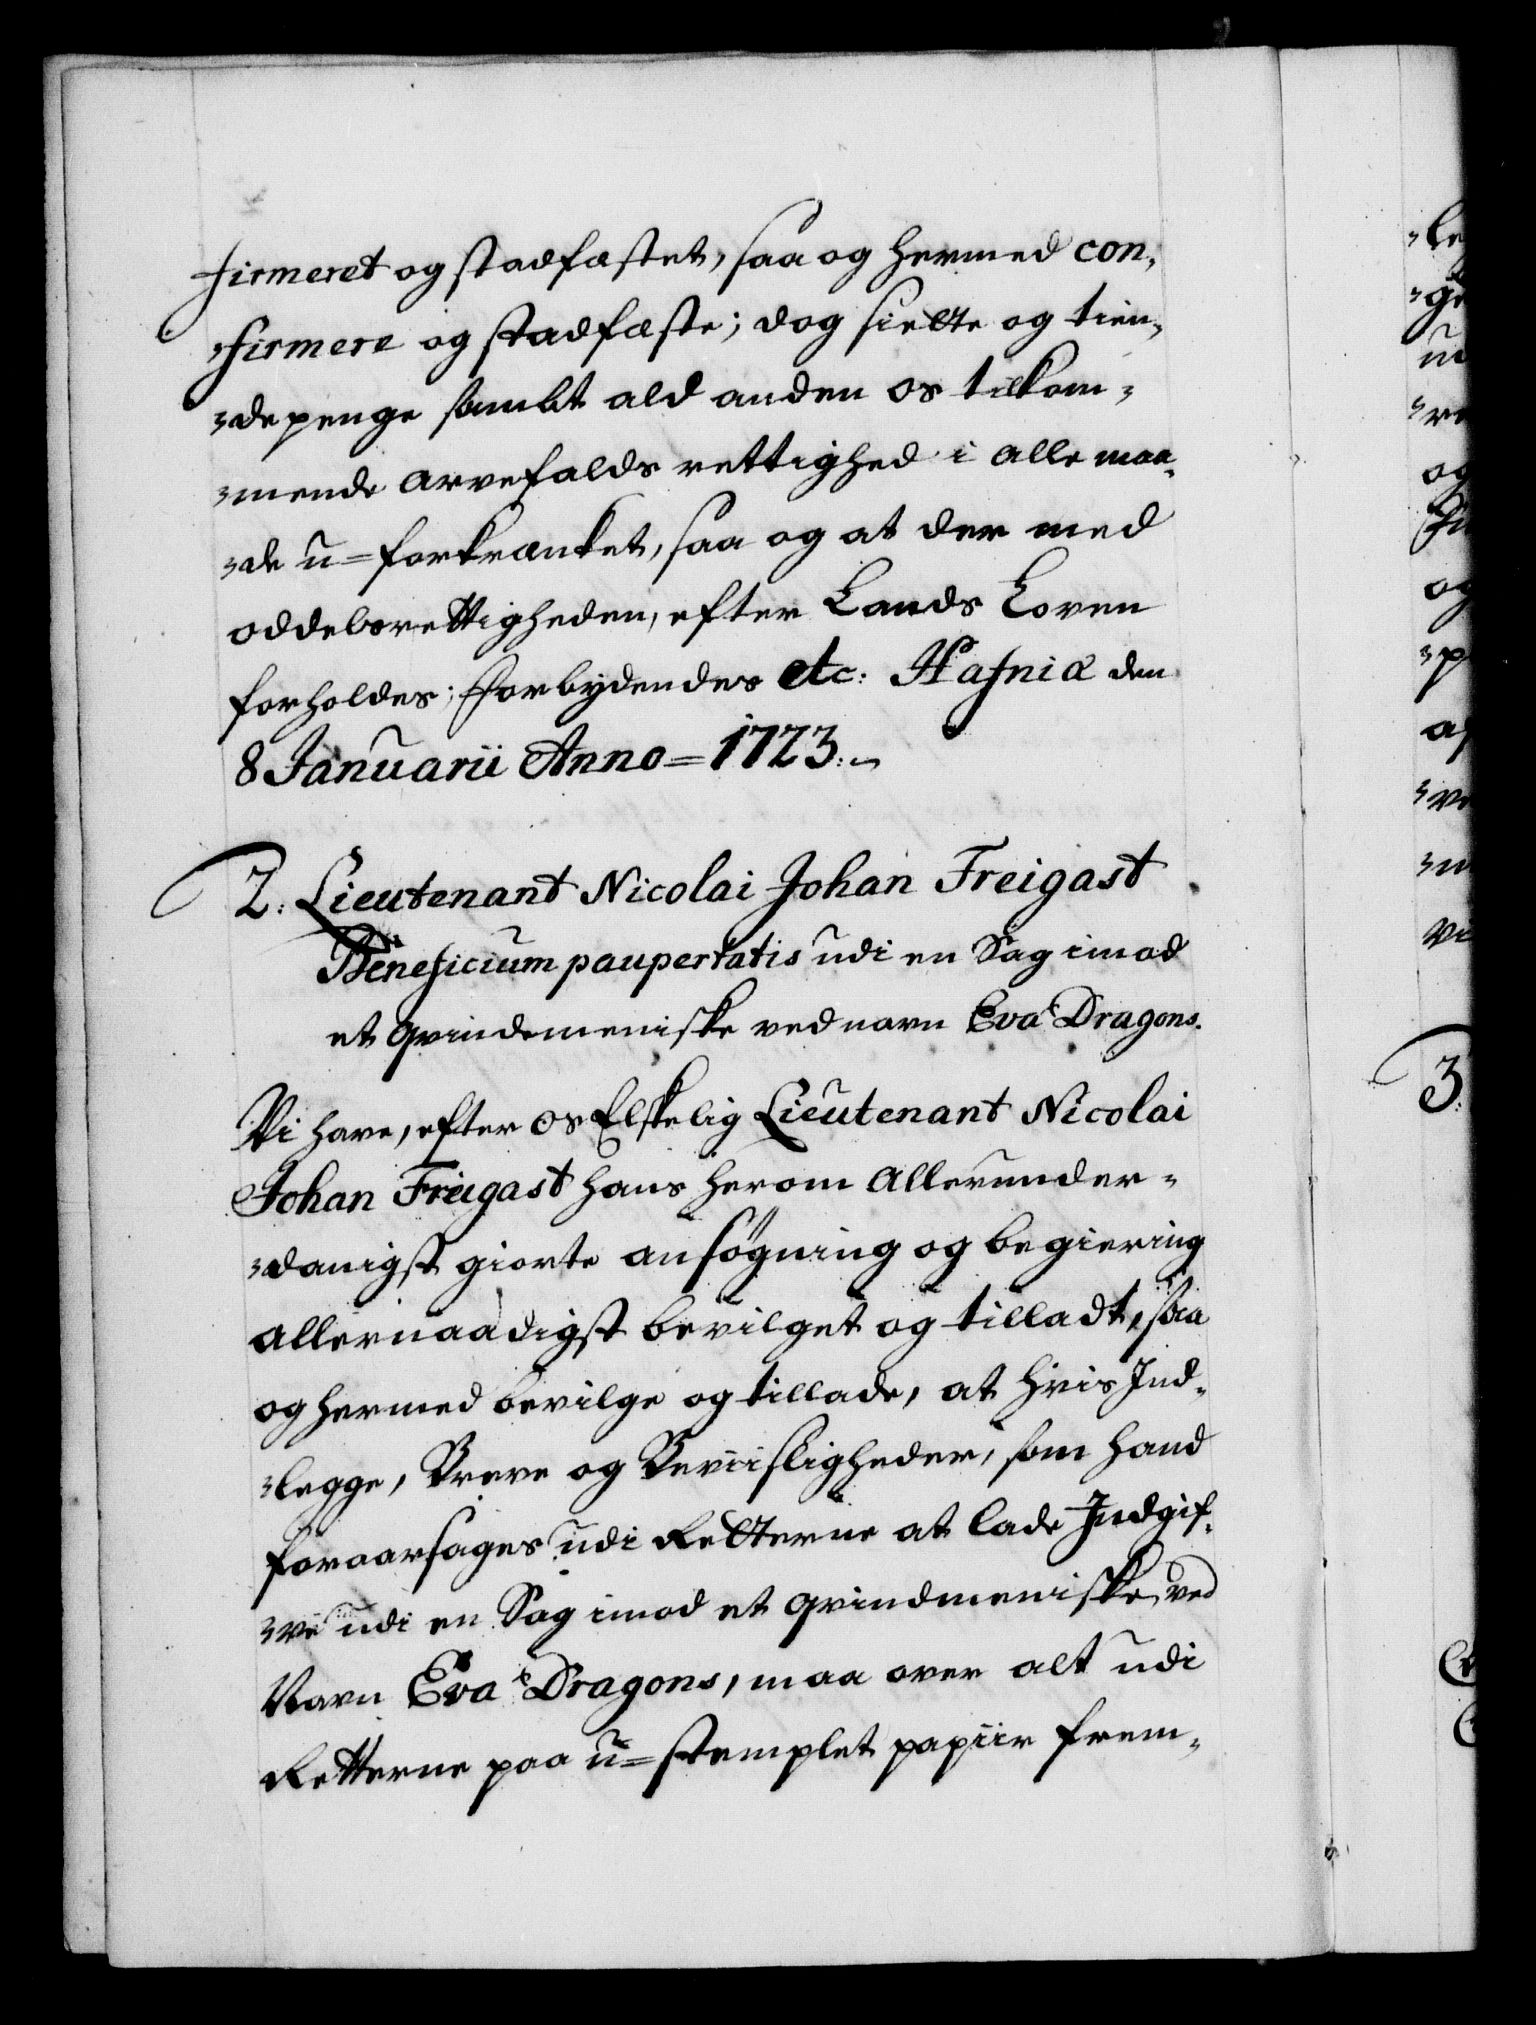 firmeret og stadfæstet, saa og hermed con-
firmere og stadfæste; dog siette og tien-
de penge sambt ald anden os tilkom-
mende arvefalds rettighed i alle maa-
de u=forkrænket, saa og at der med
oddelsrettigheden, efter Lands Loven
forholdes; forbydendes etc: Hafniæ den
8 Januarii Anno = 1723.
2. Lieutenant Nicolai Johan Freigast
Beneficium paupertatis udi en Sag imod
et qvindemeniske ved navn Eva Dragons.
Vi have, efter os Elskelig Lieutenant Nicolai
Johan Freigast hans herom Allerunder-
danigst giorte ansøgning og begiering
allernaadigst bevilget og tilladt, saa
og hermed bevilge og tillade, at hvis Ind-
legge, Breve og Beviisligheder, som hand
foraarsages udi Retterne at lade Indgif-
ve udi en Sag imod et qvindmeniske, ved
Navn Eva Dragons, maa over alt udi
Retterne paa u=stemplet papiir frem-
3.